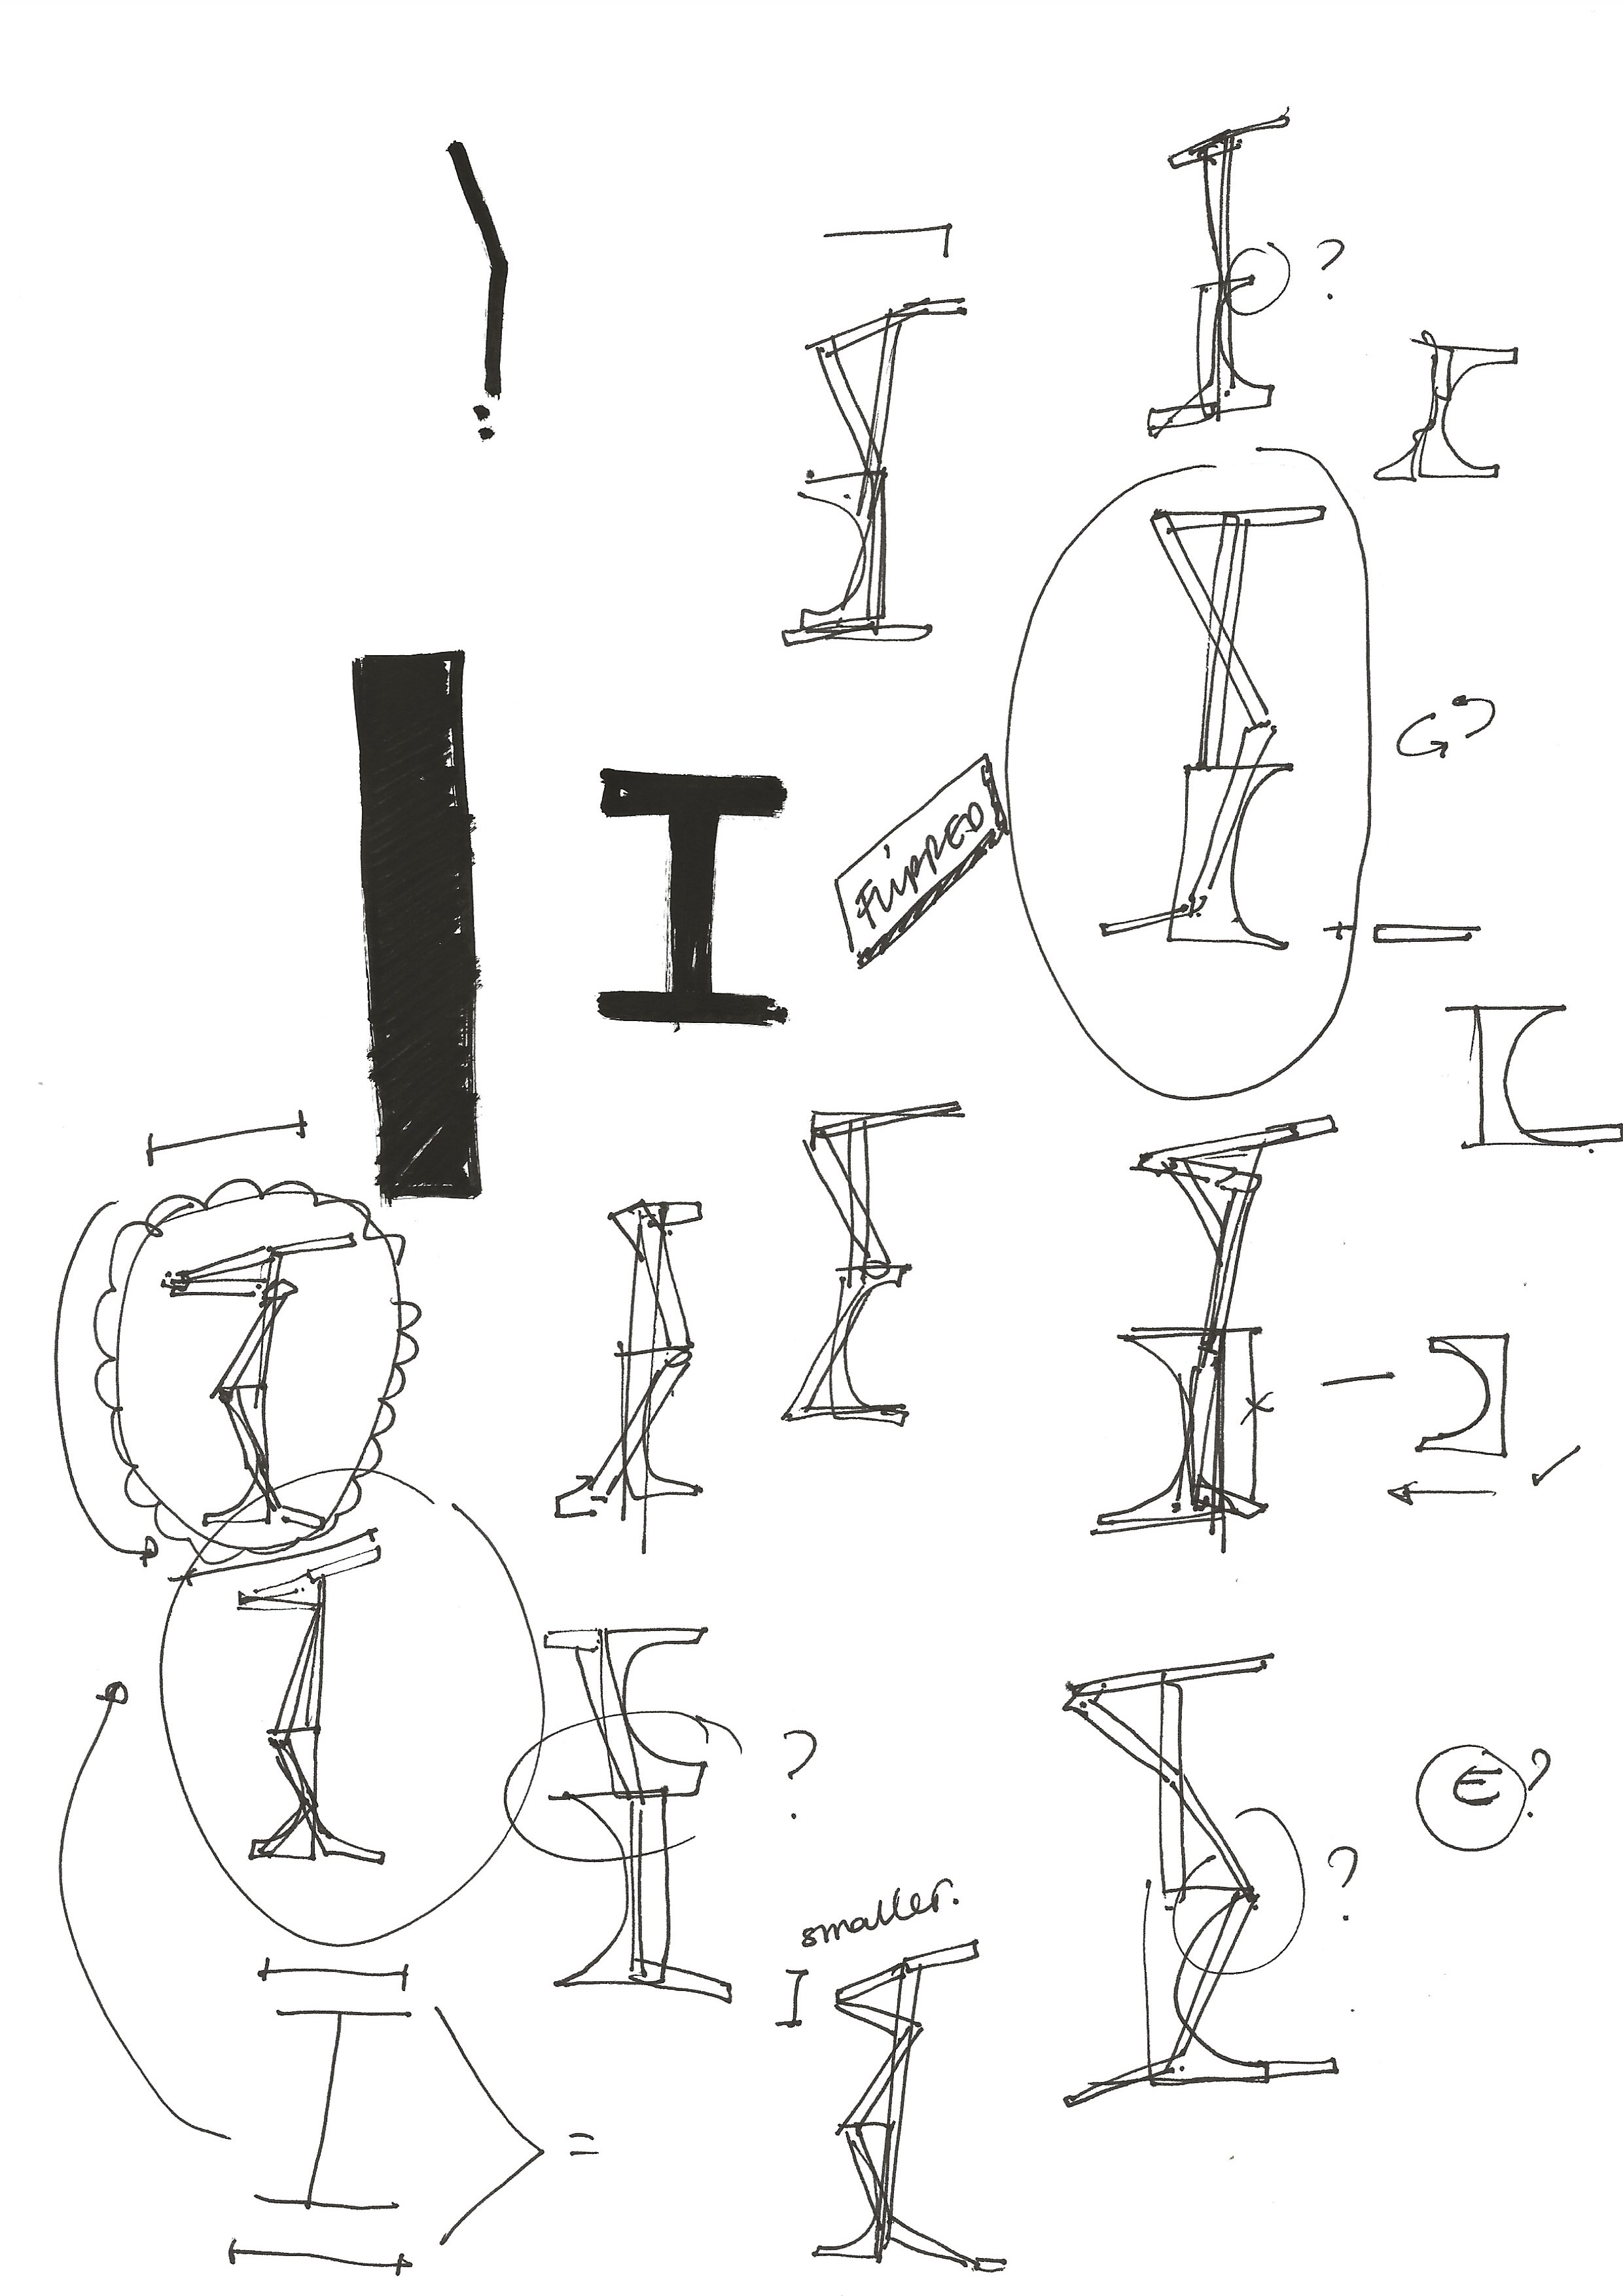 ?
I
FLIPPED
+
?
smaller.
I
€?
?
=